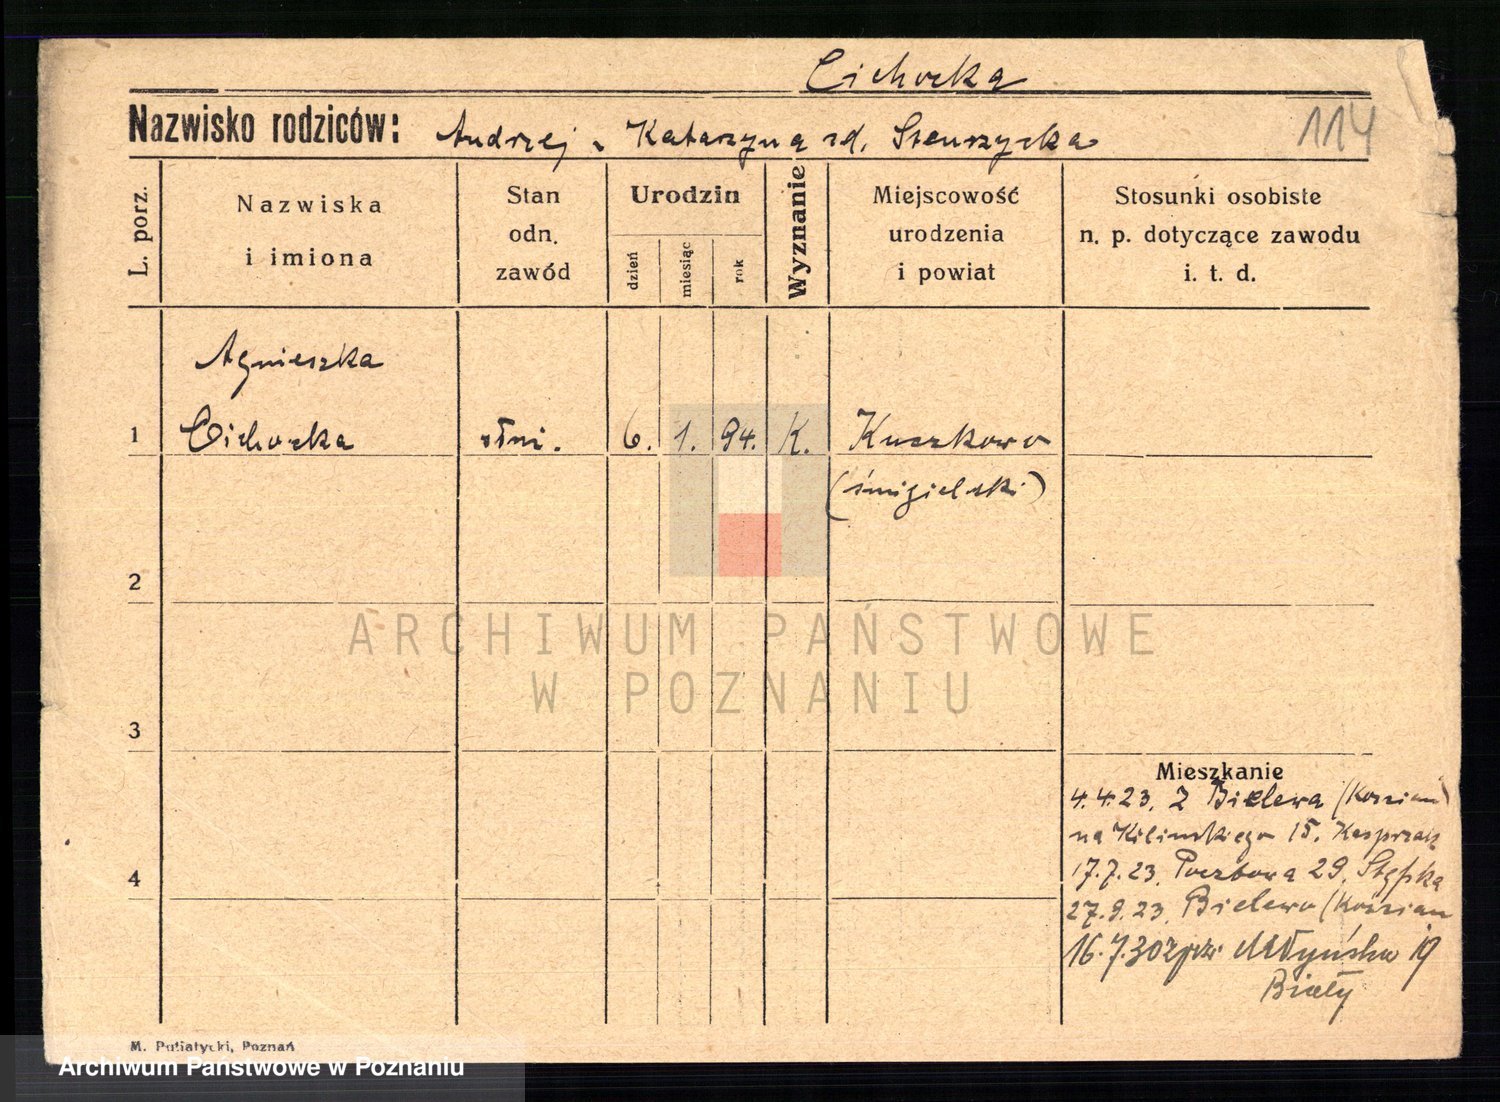 Cichocka
Nazwisko rodziców: Andrzej i Katarzyna zd.
114
L. porz.
Nazwiska
i imiona
Stan
odn.
zawód
Urodzin
dzień
miesiąc
rok
Wyznanie
Miejscowość
urodzenia
i powiat
Stosunki osobiste
n. p. dotyczące zawodu
i. t. d.
Agnieszka
1 Cichocka służ. 6. 1. 94. K. Kuszkowo
(śmigielski)
2
ARCHIWUM PAŃSTWOWE
W POZNANIU
3
Mieszkanie
4.4.23. Z Bielewa (Kościan)
na Kilińskiego 15. Kasprzak
4
17.7.23. Pocztowa 29.
27.9.23. Bielewo (Kościan
16.7.30 Młyńska 19
Biały
M. Putiatycki, Poznań
Archiwum Państwowe w Poznaniu